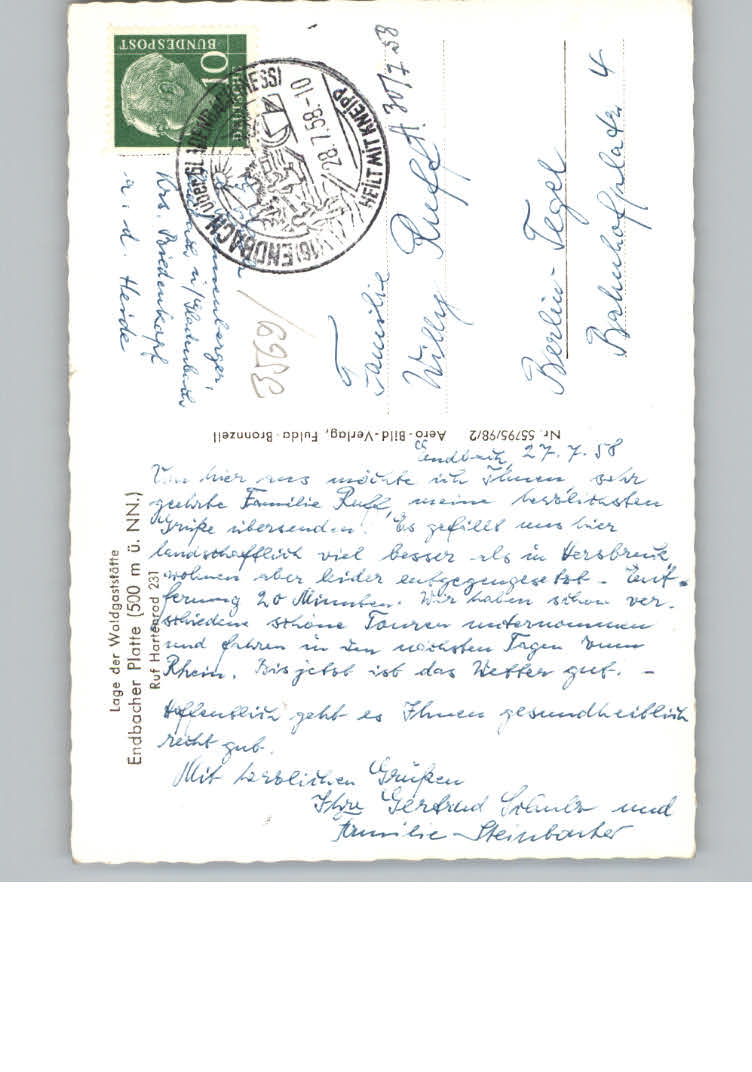 Lage der Waldgaststätte
Endbacher Platte (500 m ü. NN.)
Ruf Hartenrod 231
Endbach, 27.7.58
Von hier aus möchte ich Ihnen, sehr
geehrte Familie Ruff, meine herzlichsten
Grüße übersenden. Es gefällt uns hier
landschaftlich viel besser als in Hersbruck
wohnen aber leider entgegengesetzt - Ent-
fernung 20 Minuten. Wir haben schon ver-
schiedene schöne Touren unternommen
und fahren in den nächsten Tagen zum
Rhein. Bis jetzt ist das Wetter gut. -
Hoffentlich geht es Ihnen gesundheitlich
recht gut.
Mit herzlichen Grüßen
Ihre Gertrud Schulz und
Familie Steinbacher
Nr. 55795/98/2 Aero-Bild-Verlag, Fulda-Bronnzell
DEUTSCHE
BUNDESPOST
10
(16) ENDBACH über GLADENBACH (HESS)
28.7.58-10
HEILT MIT KNEIPP
A. 30/7 58
Krs. Biedenkopf
a. d. Heide
3569/
Familie
Willy Ruff
Berlin-Tegel
Bahnhofplatz 4